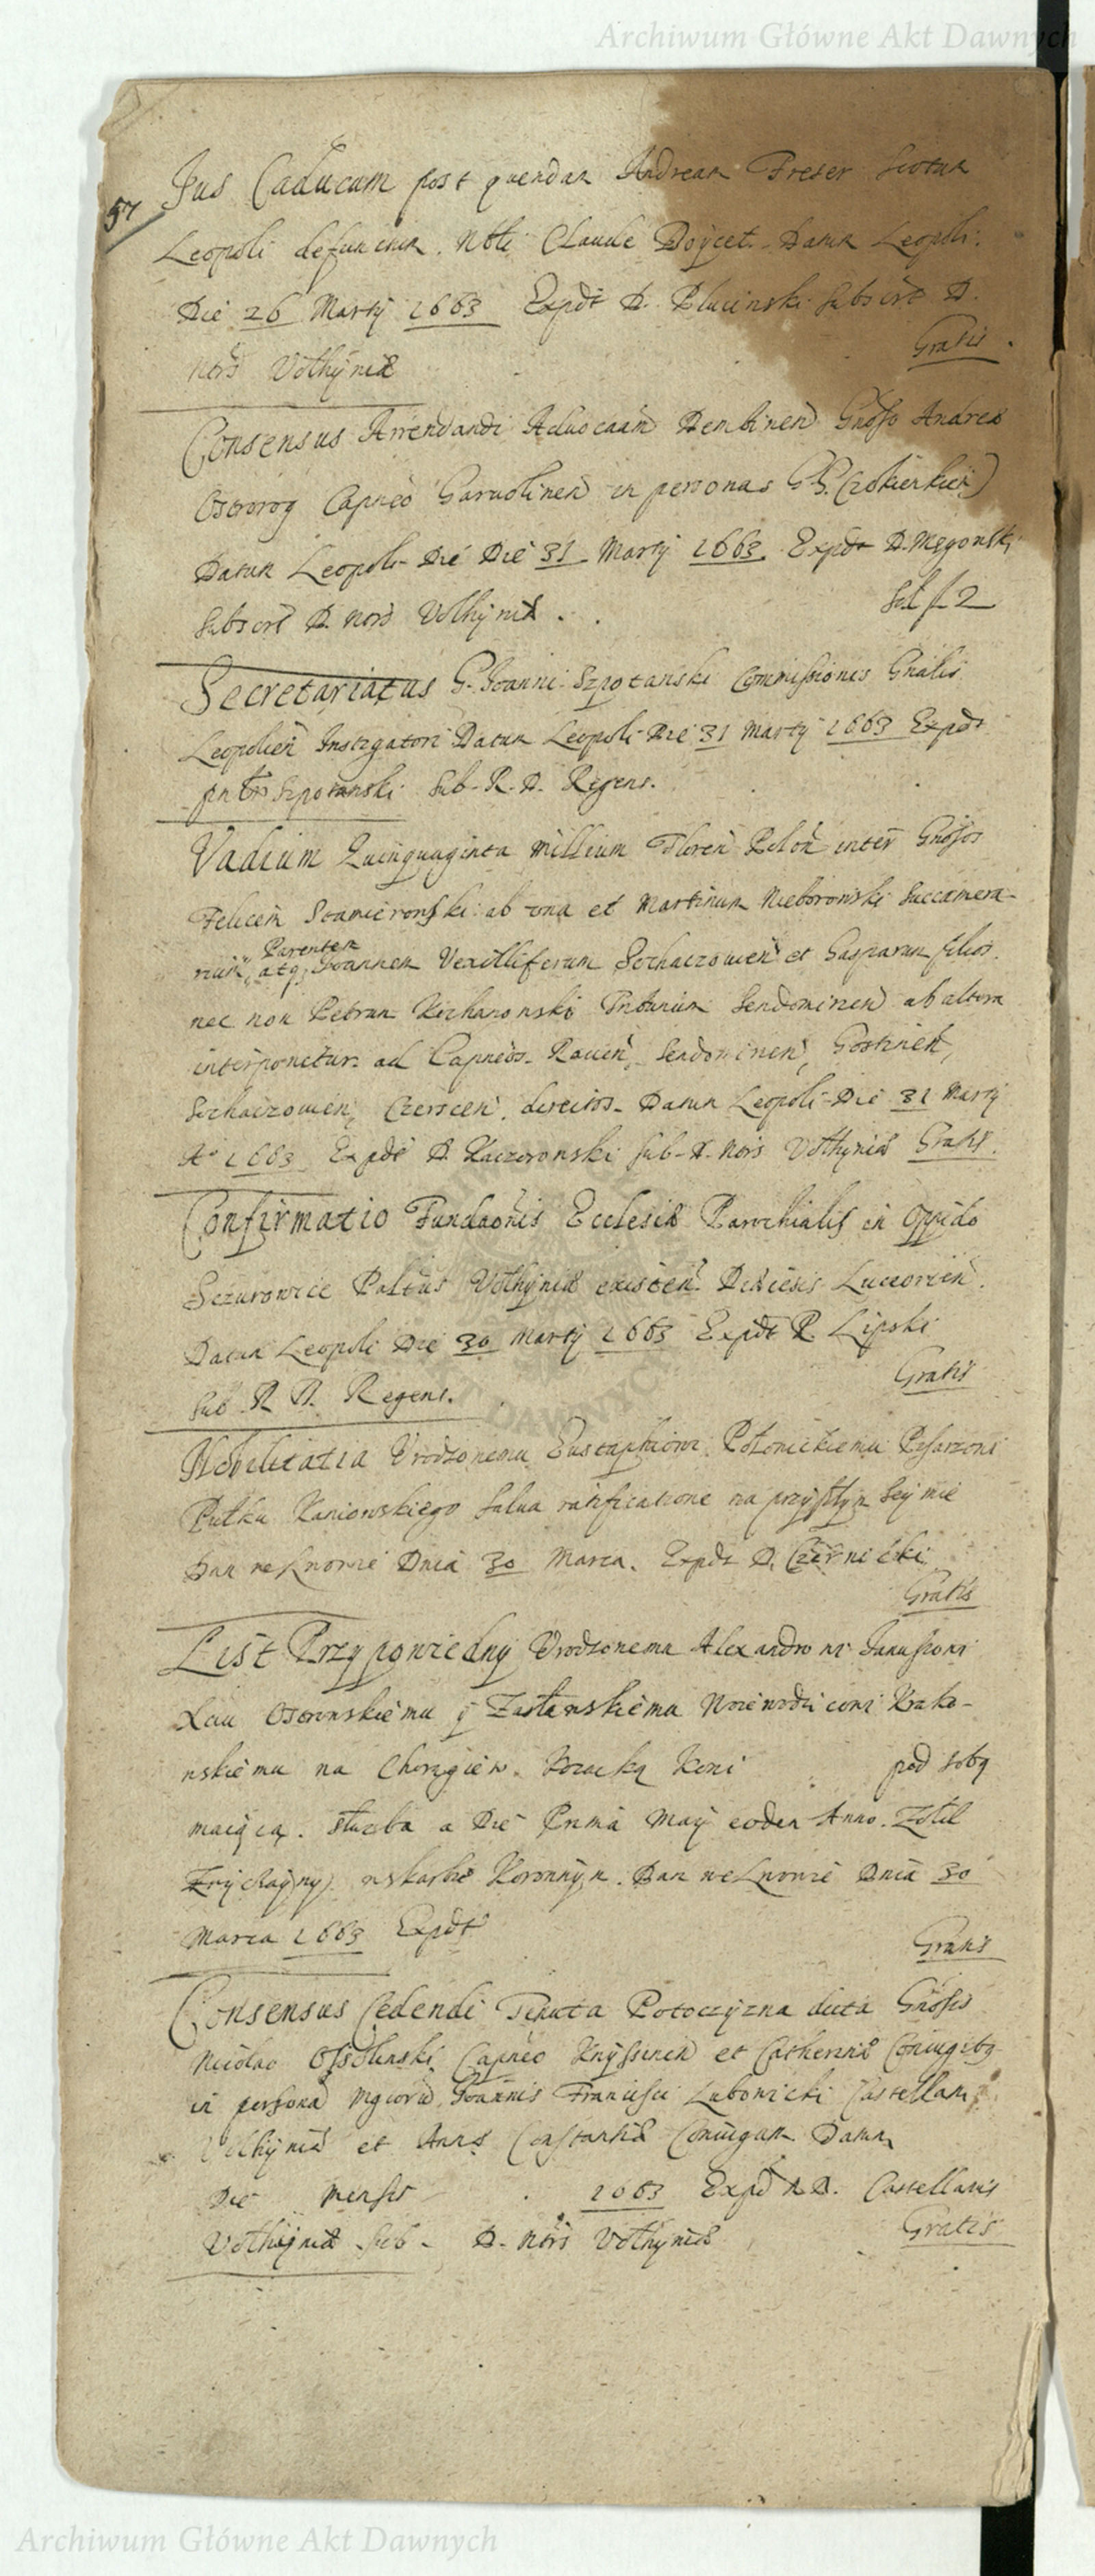 Archiwum Główne Akt Dawnych
57
Jus Caducum post quendam Andream Freser Scotum
Leopoli defunctum. Nbli Claude Doÿcet. Datum Leopoli.
Die 26 Martÿ 1663 Expdt D. Plucinski Subscrt D.
Gratis.
Nors Volhÿniæ
Consensus Arrendandi Advocaãm Dembinen Gnoso Andreæ
Ostrorog Capneo Garvolinen in personas GG.
Datum Leopoli Die Die 31 Martÿ 1663. Expdt D. Męgonski
Sol f 2
Subscrt D. Nors Volhÿniæ.
Secretariatus G. Joanni Szpotanski Commissionis Gnalis
Leopolien Instigatori Datum Leopoli Die 31 Martÿ 1663 Expdt
pntbs Szpotanski Sub R. D. Regens.
Vadium Quinquaginta Millium Floren Polon inter Gnosos
Felicem ab una et Martinum Nieborowski Succamera-
rium, atq Parentem Joannem Vexilliferum Sochaczowien et Gasparum filios.
nec non Petrum Kochanowski Tribunum Sendomirien ab altera
interponitur ad Capneos Raven, Sendomirien, Gostinen,
Sochaczowien, Czerscen. directos. Datum Leopoli Die 31 Martÿ
Aº 1663 Expdt D. Kaczorowski Sub D. Nors Volhÿniæ Gratis.
Confirmatio Fundaonis Ecclesiæ Parochialis in Oppido
Sczurowice Paltus Volhÿniæ existen. Diæcesis Luceorien.
Datum Leopoli Die 30 Martÿ 1663 Expdt R. Lipski
Gratis
Sub R. D. Regens.
Nobilitatia Urodzonemu Eustaphiowi Pisarzowi
Pułku Kaniowskiego salva ratificatione na przyszłÿm Seÿmie
Dan we Lwowie Dnia 30 Marca. Expdt D. Czernicki
Gratis
List Przypowiednÿ Urodzonemu Alexandrowi Januszowi
Xciu Ostrowskiemu ÿ Zasławskiemu Woiewodzicowi Krako-
wskiemu na Chorągiew Kozacką Koni pod sobą
maiącą. służba a Die Prima Maÿ eodem Anno. Zołd
Zwÿczaÿnÿ w skarbie Koronnÿm. Dan we Lwowie Dnia 30
Marca 1663 Expdt
Gratis
Consensus Cedendi Tenuta Potoczÿzna dicta Gnosis
Nicolao Ossolinski Capneo Knÿssinen et Catherinæ Coniugibs
in persona Mgcorū Joannis Francisci Lubowicki Castellani
Volhÿniæ et Annæ Constantiæ Coniugum Datum
Die Mensis 1663 Expd R. D. Castellanis
Gratis
Volhÿniæ Sub D. Nors Volhÿniæ
Archiwum Główne Akt Dawnych